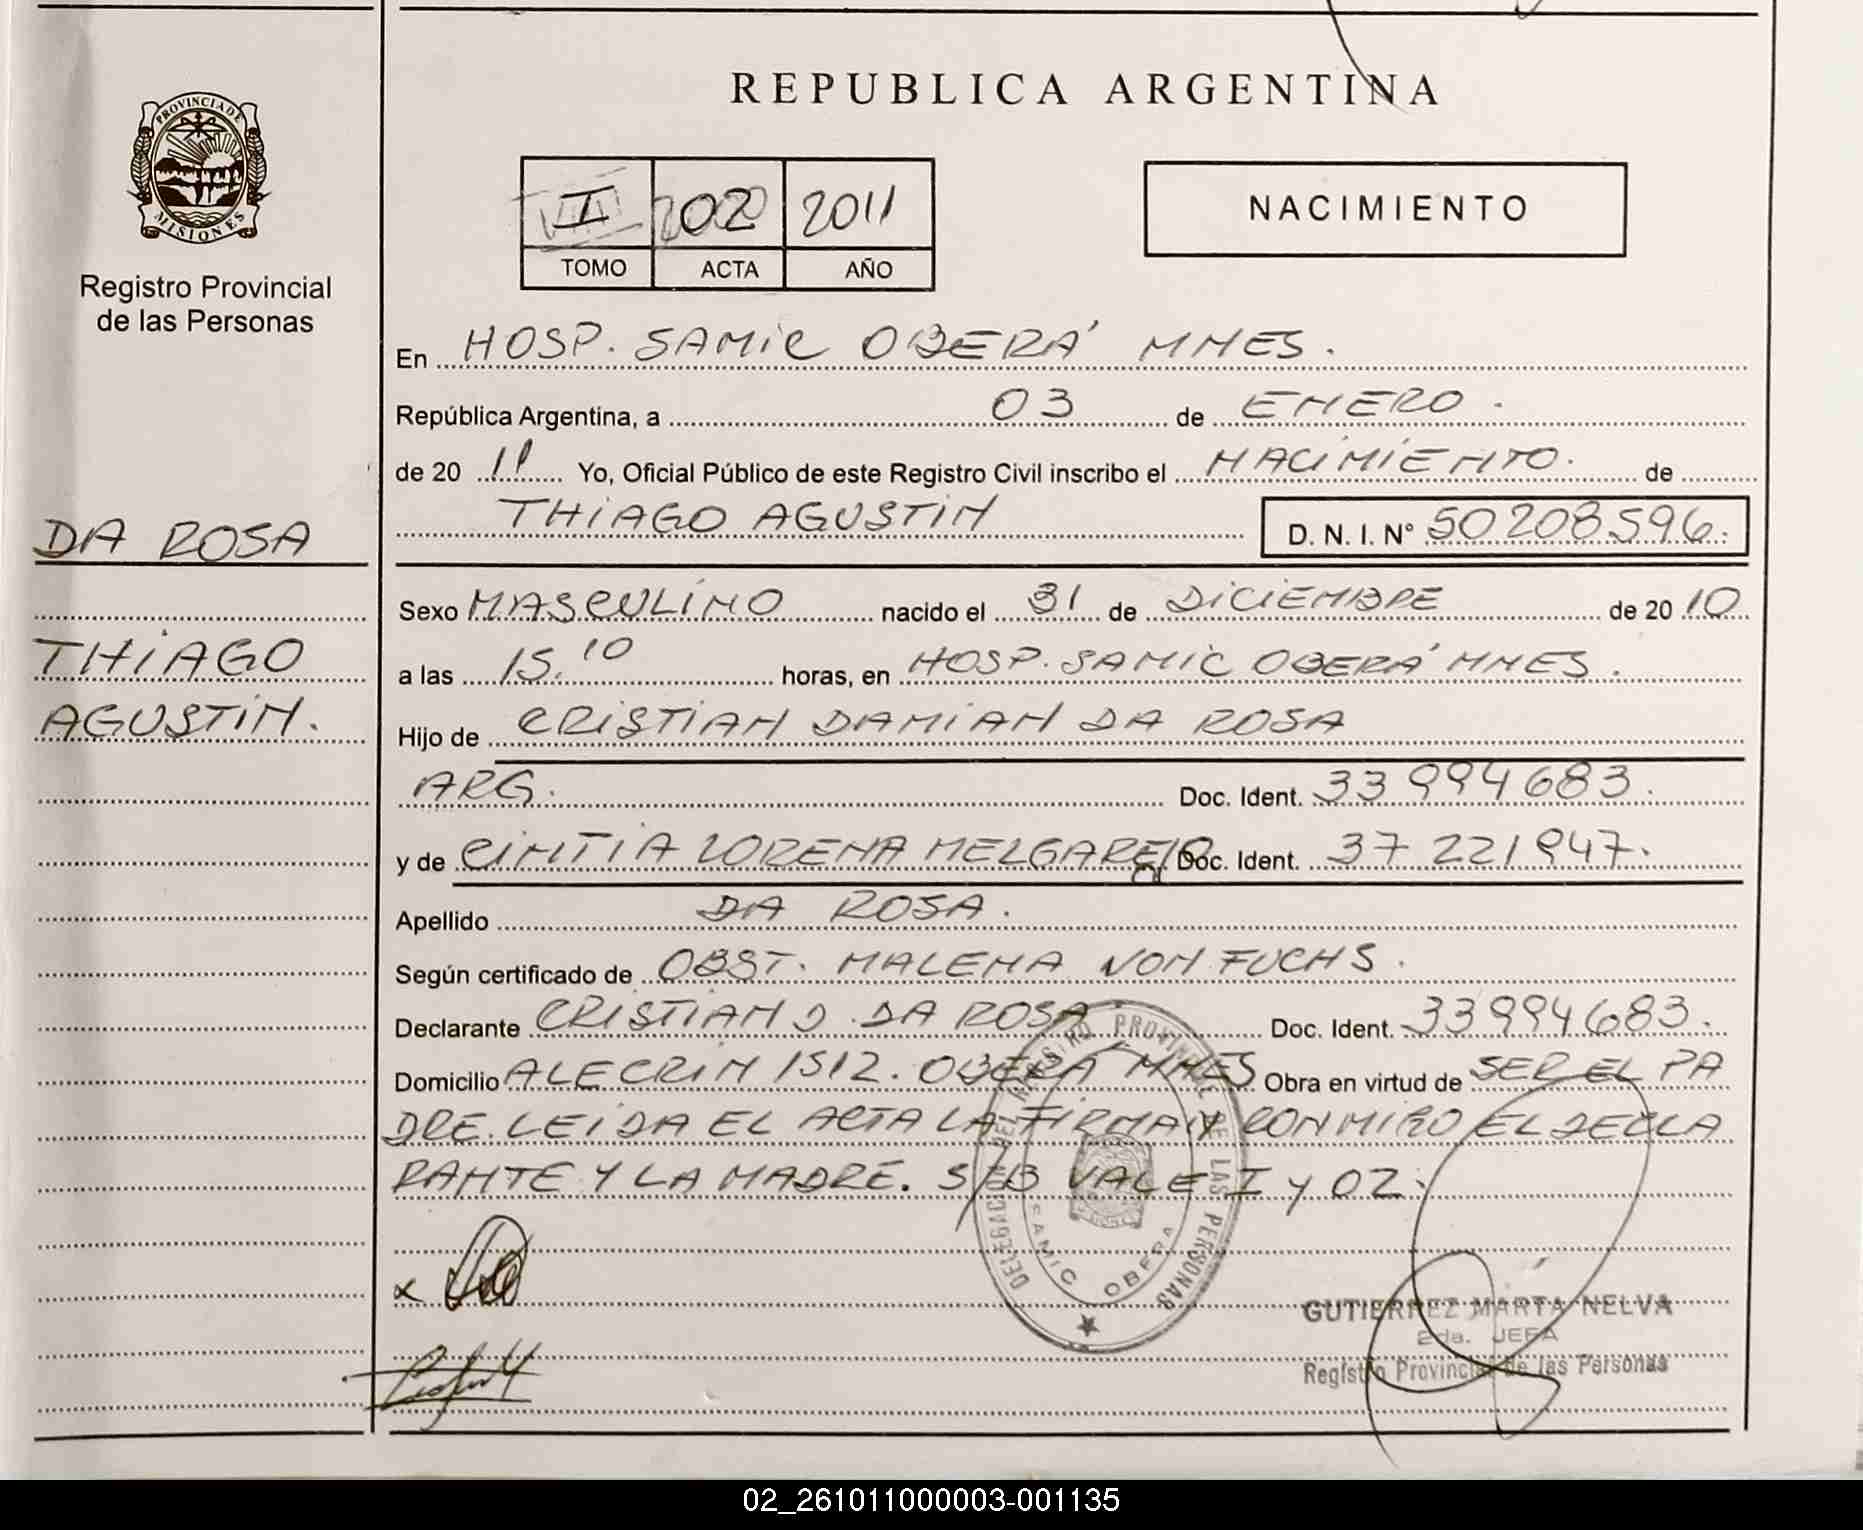 REPUBLICA ARGENTINA
PROVINCIA DE MISIONES
Registro Provincial
de las Personas
I 02 2011
TOMO ACTA AÑO
NACIMIENTO
En HOSP. SAMIC OBERÁ MNES.
República Argentina, a 03 de ENERO.
de 20 11 Yo, Oficial Público de este Registro Civil inscribo el NACIMIENTO. de
THIAGO AGUSTIN D. N. I. N° 50208596.
DA ROSA
THIAGO
AGUSTIN.
Sexo MASCULINO nacido el 31 de DICIEMBRE de 20 10
a las 15.10 horas, en HOSP. SAMIC OBERÁ MNES.
Hijo de CRISTIAN DAMIAN DA ROSA
ARG. Doc. Ident. 33994683.
y de CINTIA LORENA MELGAREJO Doc. Ident. 37221947.
Apellido DA ROSA.
Según certificado de OBST. MALENA VON FUCHS.
Declarante CRISTIAN D. DA ROSA Doc. Ident. 33994683.
Domicilio ALECRIN 1512. OBERÁ MNES Obra en virtud de SER EL PA
DRE. LEIDA EL ACTA LA FIRMAN CONMIGO EL DECLA
RANTE Y LA MADRE. S/B VALE I Y 02.
DELEGACION DEL REGISTRO PROVINCIAL DE LAS PERSONAS
SAMIC OBERA
GUTIERREZ MARTA NELVA
2da. JEFA
Registro Provincial de las Personas
02_261011000003-001135